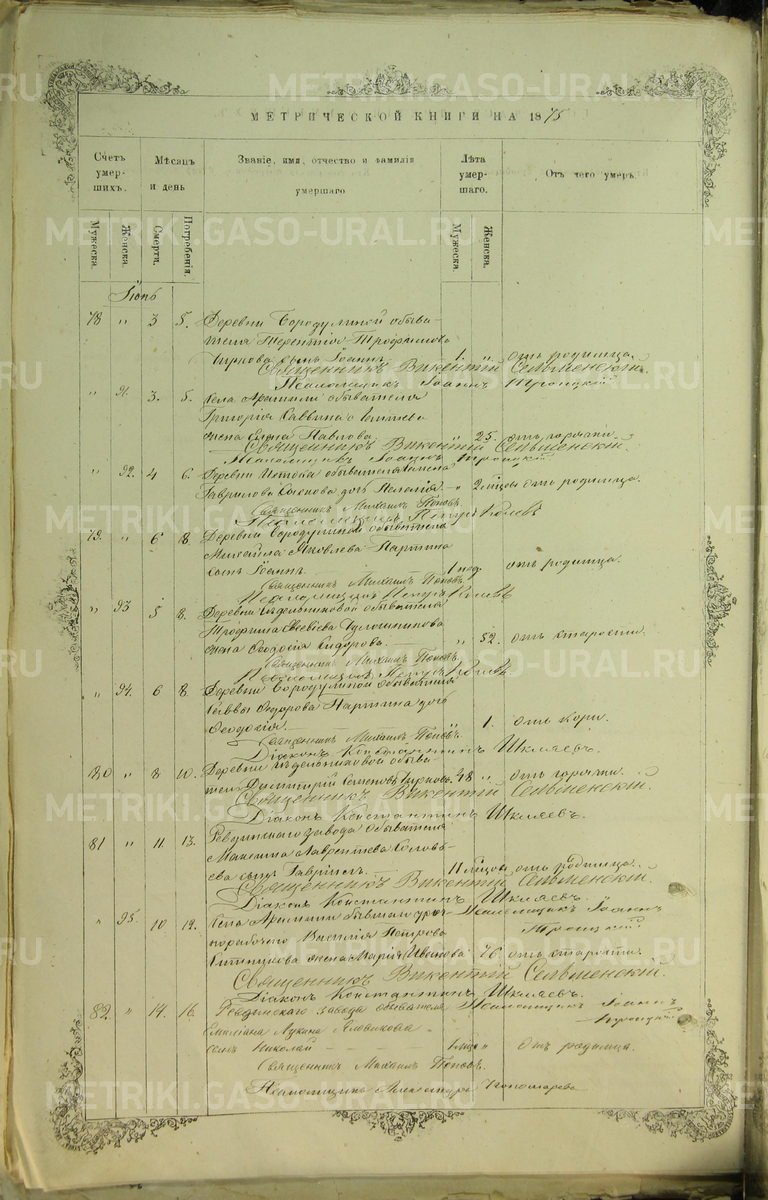 METRIKI.GASO-URAL.RU
МЕТРИЧЕСКОЙ КНИГИ НА 1875
Счетъ умер- шихъ.
Мѣсяцъ и день
Званіе, имя, отчество и фамилія умершаго
Лѣта умер- шаго.
Отъ чего умеръ.
Мужеска.
Женска.
Смерти.
Погребенія.
Мужеска.
Женска.
Іюнь
78 " 3 5. Деревни Бородулиной обыва-
теля Терентія Трофимова
Чиркова сынъ Іоаннъ 1. " отъ родимца.
Священникъ Викентій Сельменскій.
Псаломщикъ Іоаннъ Троицкій
" 91. 3. 5. Села Арамили обывателя
Григорія Саввина
жена Елена Павлова " 25 отъ горячки.
Священникъ Викентій Сельменскій.
Псаломщикъ Іоаннъ Троицкій
" 92. 4 6. Деревни обывателя
Гаврилова дочь Пелагія. " 2 мѣсяц. отъ родимца.
Священникъ Михаилъ Поповъ.
Псаломщикъ Петръ
79. " 6 8. Деревни Бородулиной обывателя
Михаила Яковлева Паршина
сынъ Іоаннъ. 1 нед. отъ родимца.
Священникъ Михаилъ Поповъ.
Псаломщикъ Петръ
" 93 5 8. Деревни обывателя
Трофима
жена Ѳеодосія Сидорова. " 52. отъ старости.
Священникъ Михаилъ Поповъ.
Псаломщикъ Петръ
" 94. 6 8. Деревни Бородулиной обывателя
Саввы Ѳедорова Паршина дочь
Ѳеодосія. " 1. отъ кори.
Священникъ Михаилъ Поповъ.
Діаконъ Константинъ Шкляевъ.
80 " 8 10. Деревни обыва-
тель Димитрій Семеновъ Чирковъ. 48 " отъ горячки.
Священникъ Викентій Сельменскій.
Діаконъ Константинъ Шкляевъ.
81 " 11. 13. Ревдинскаго завода обывателя
Максима Лаврентьева Соловь-
ева сынъ Гавріилъ. 11 мѣсяцов. отъ родимца.
Священникъ Викентій Сельменскій.
Діаконъ Константинъ Шкляевъ.
Псаломщикъ Іоаннъ
Троицкій
" 95. 10 12. Села Арамили бывшаго
Петрова
жена Марія Иванова 76 отъ старости.
Священникъ Викентій Сельменскій.
Діаконъ Константинъ Шкляевъ.
Псаломщикъ Іоаннъ
Троицкій
82 " 14. 16. завода обывателя
Лукина
сынъ Николай " отъ родимца.
Священникъ Михаилъ Поповъ.
Псаломщикъ Александръ Пономаревъ